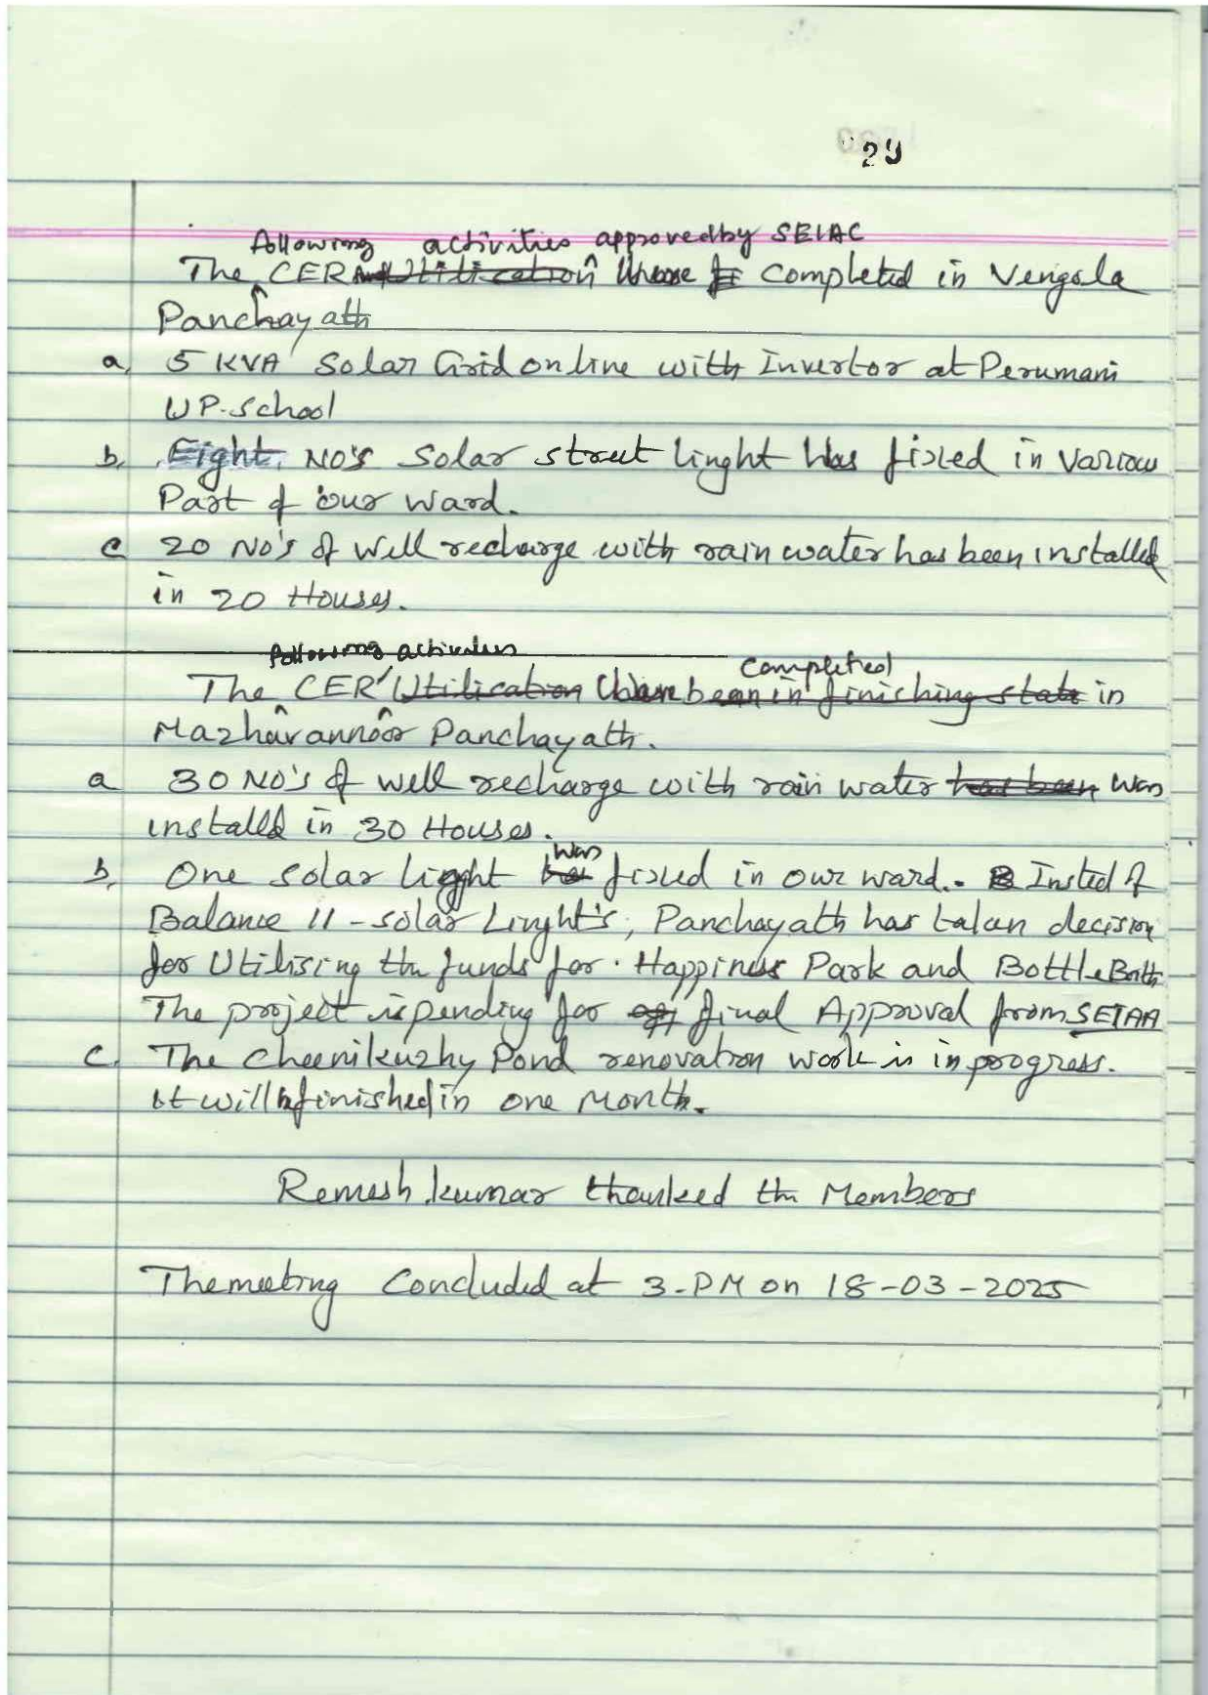 29
following activities approved by SEIAC
The CER Utilication were completed in Vengola
Panchayath
a, 5 KVA Solar Grid online with Invertor at Perumani
UP. School
b, Eight NO's Solar street linght has fixed in Variou
Part of our ward.
c 20 No's of well recharge with rain water has been installed
in 20 Houses.
following activities
completed
The CER Utilication been in finiching state in
Mazhavannoor Panchayath.
a 30 NO's of well recharge with rain water has been was
installd in 30 Houses.
was
b, One solar light has fixed in our ward. Insted of
Balance 11 - solar Linght's, Panchayath has takan decision
for Utilising the funds for. Happiness Park and Bottle Booth
The project is pending for final Approval from SEIAA
c. The Cheenikuzhy Pond renovation work is in progress.
It will be finished in one month.
Remesh kumar thanked the Members
The meeting Concluded at 3-PM on 18-03-2025